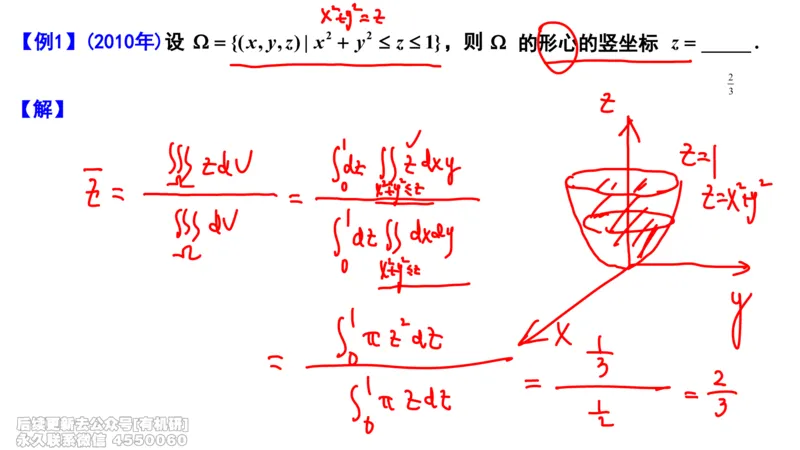 x²+y²=z
【例1】(2010年) 设 Ω = {(x, y, z) | x² + y² ≤ z ≤ 1}，则 Ω 的形心的竖坐标 z = _____ .
2/3
【解】
z̄ = ∭_Ω z dV / ∭_Ω dV = ∫₀¹ dz ∬_{x²+y²≤z} z dxy / ∫₀¹ dz ∬_{x²+y²≤z} dxdy
= ∫₀¹ π z² dz / ∫₀¹ π z dz = (1/3) / (1/2) = 2/3
z
z=1
z=x²+y²
y
x
后续更新去公众号[有机研]
永久联系微信 4550060